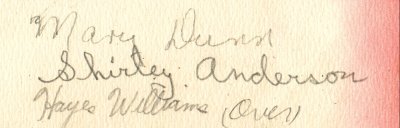 Mary Dunn
Shirley Anderson
Hayes Williams (Over)